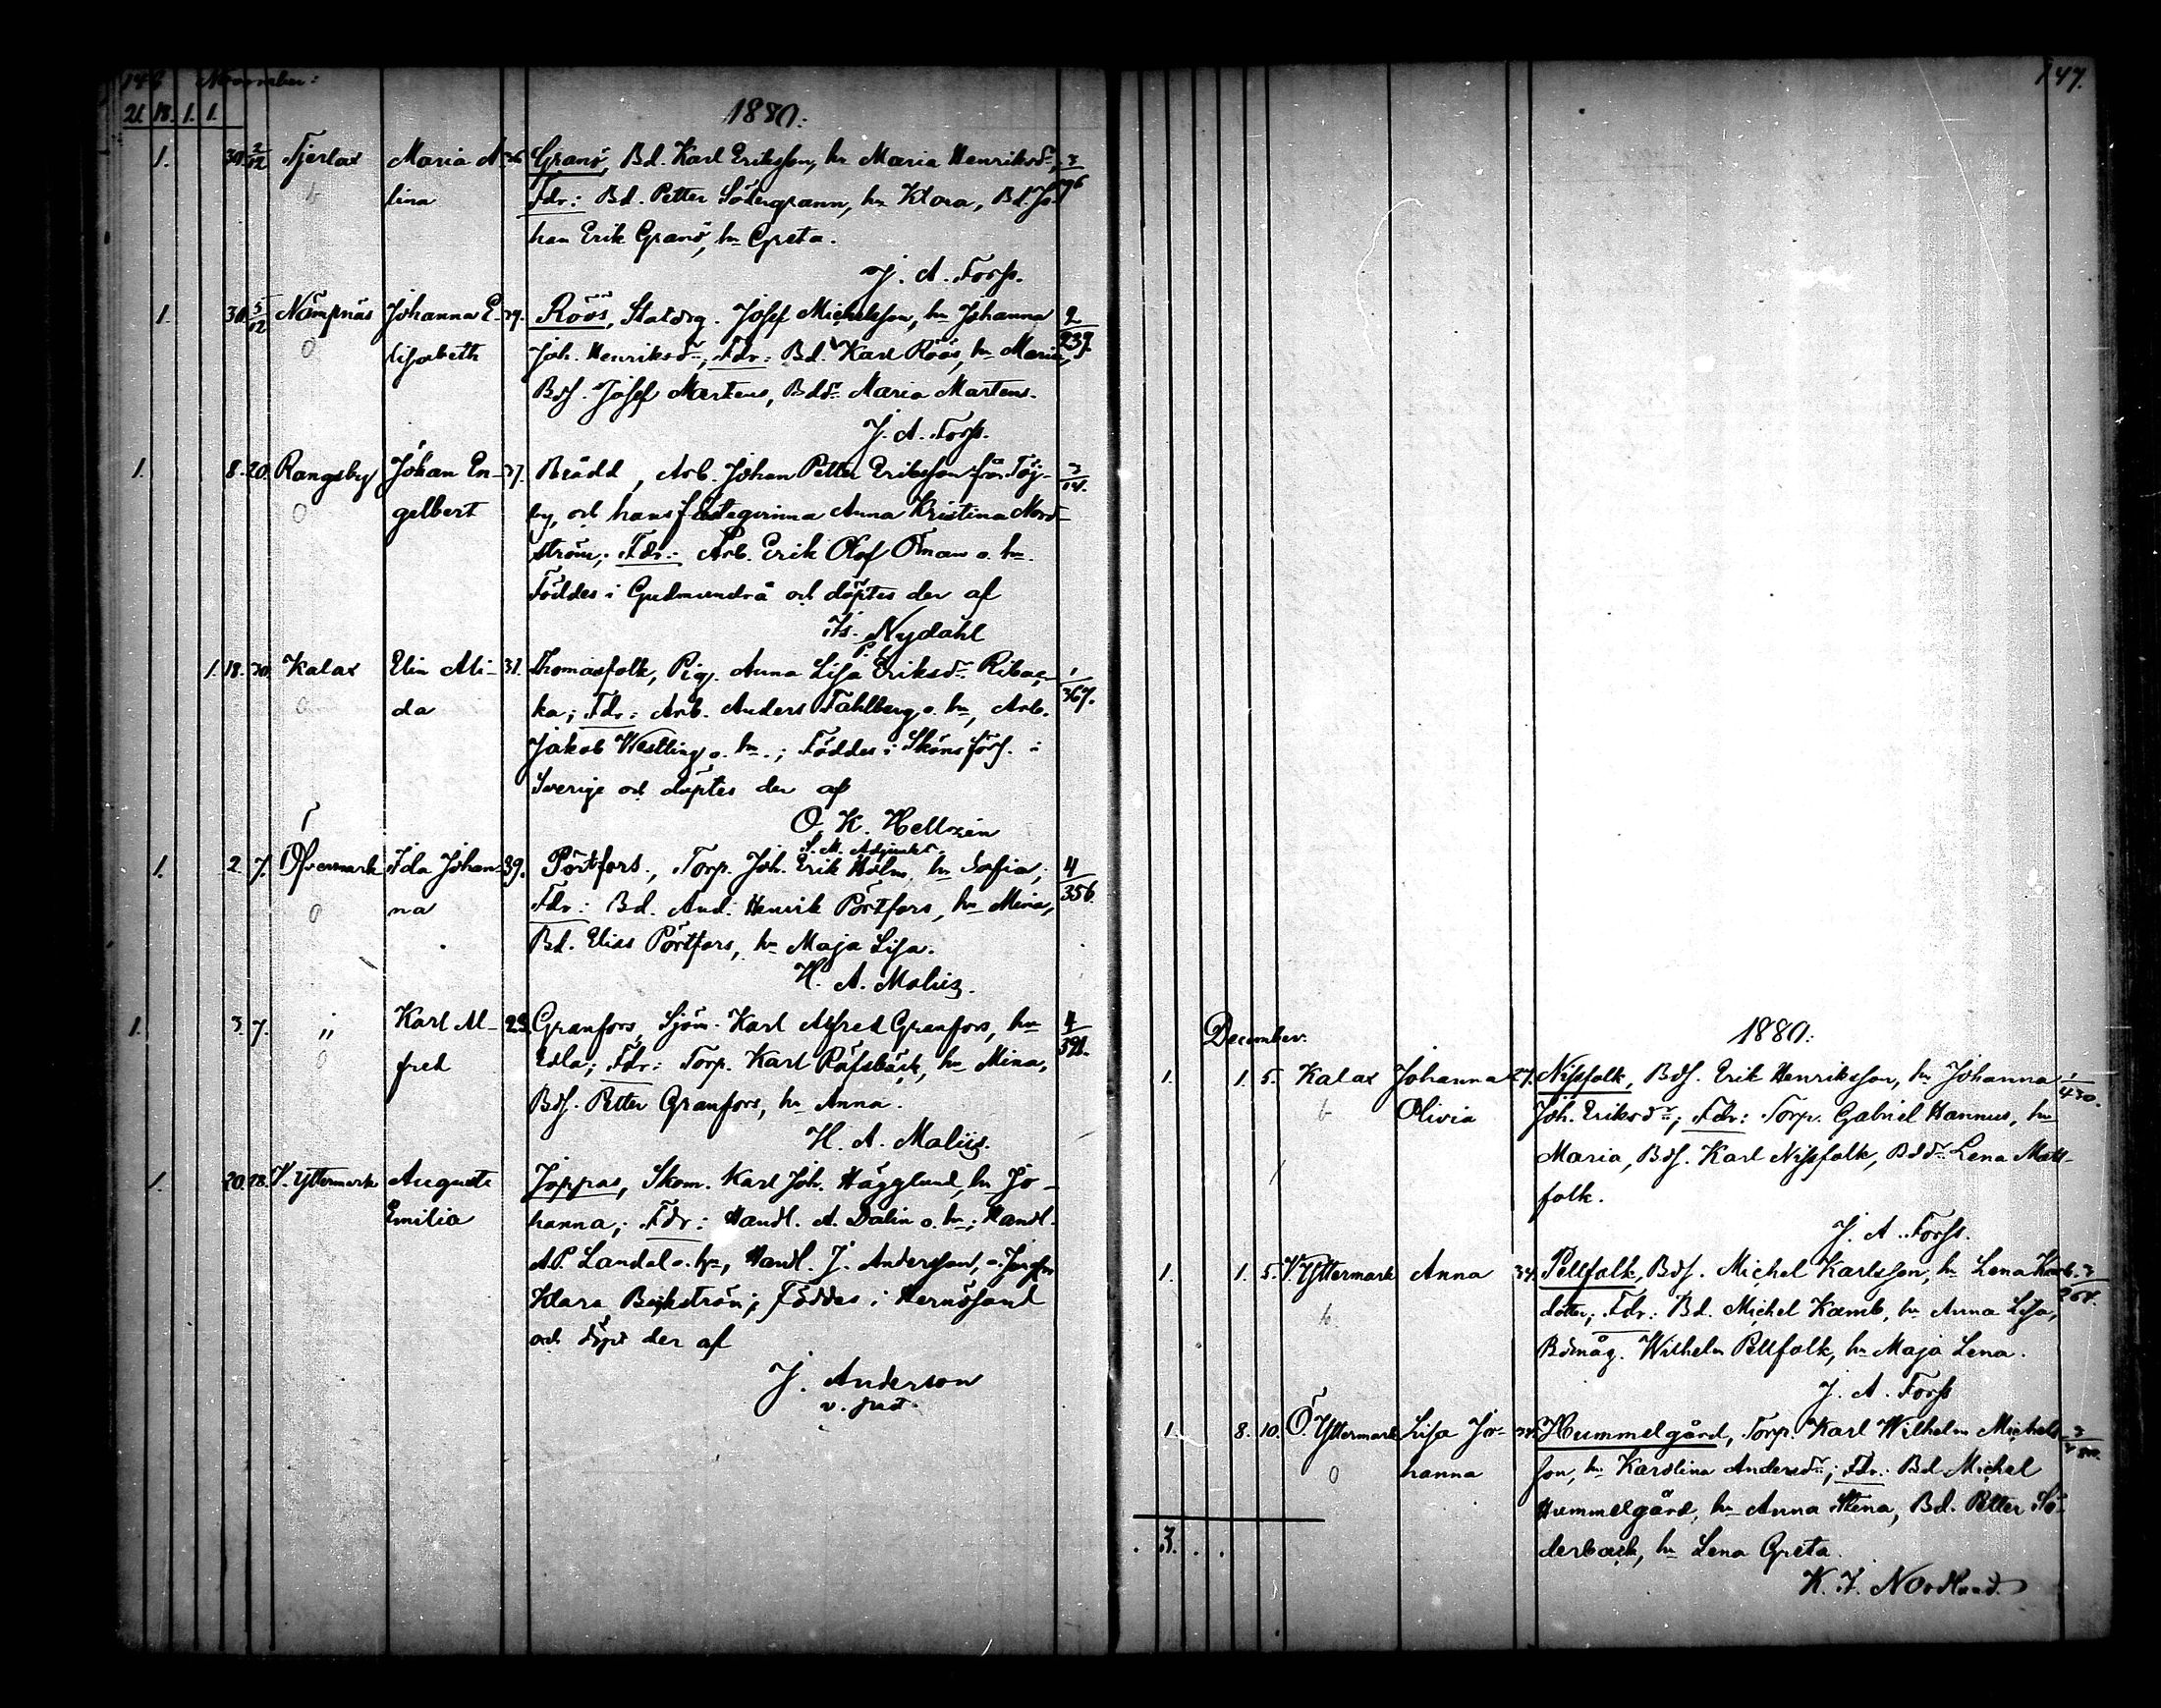 146 November:
21. 18. 1. 1.
1880.
1. 30. 2/12 Tjerlax Maria A- 36 Granö, Bd. Karl Eriksson, hu Maria Henriksdr, 3/196
b lina Fdr: Bd. Petter Södergrann, hu Klara, Bd. Jo-
han Erik Granö, hu Greta.
J. A. Forss.
1. 30. 5/12 Nämpnäs Johanna E- 29. Röös, Statdrg. Josef Michelsson, hu Johanna 2/232
0 lisabeth Joh. Henriksdr, Fdr: Bd. Karl Röös, hu Maria,
Bdf. Josef Martens, Bddr Maria Martens.
J. A. Forss.
1. 8. 20. Rangsby Johan En- 37. Brädd, Arb. Johan Petter Eriksson från Töj- 3/14.
0 gelbert by, och hans fästeqvinna Anna Kristina Nord-
ström; Fdr: Arb. Erik Olof Öman o. hu.
Föddes i Gudmundrå och döptes der af
Is. Nydahl
P.
1. 18. 30. Kalax Elin Ali- 31. Thomasfolk, Pig. Anna Lisa Eriksdr Ribac- 1/367.
0 da ka; Fdr: Arb. Anders Fahlberg o. hu, Arb.
Jakob Westling o. hu.; Föddes i Sköns förs. i
Sverige och döptes der af
O. K. Hellzén
S. M. Adjunkt.
1. 2. 7. Öfvermark Ida Johan- 39. Pörtfors., Torp. Joh. Erik Holm, hu Sofia; 4/356
0 na Fdr: Bd. And. Henrik Pörtfors, hu Mina,
Bd. Elias Pörtfors, hu Maja Lisa.
H. A. Malin.
1. 3. 7. " Karl Al- 23. Granfors, Sjöm. Karl Alfred Granfors, hu 4/321.
0 fred Edla; Fdr: Torp. Karl Räfsbäck, hu Mina,
Bdf. Petter Granfors, hu Anna.
H. A. Malin.
1. 20. 28. V. Yttermark Augusta Joppas, Skom. Karl Joh. Hägglund, hu Jo-
Emilia hanna; Fdr: Handl. A. Dalin o. hu; Handl.
A.P. Landal o. hu, Handl. J. Andersson, o. Jungfru
Klara Bäckström; Föddes i Hernösand
och döpt der af
J. Anderson
v. past.
147.
December. 1880.
1. 1. 5. Kalax Johanna 27. Nissfolk, Bdf. Erik Henriksson, hu Johanna 1/430.
b Olivia Joh. Eriksdr; Fdr: Torp. Gabriel Hannus, hu
Maria, Bdf. Karl Nissfolk, Bddr Lena Matt-
folk.
J. A. Forss.
1. 1. 5. V. Yttermark Anna 34. Pellfolk, Bdf. Michel Karlsson, hu Lena Kamb-
b. dotter; Fdr: Bd. Michel Kamb, hu Anna Lisa,
Bdmåg. Wilhelm Pellfolk, hu Maja Lena.
J. A. Forss
1. 8. 10. Ö. Yttermark Lisa Jo- Hummelgård, Torp. Karl Wilhelm Michels-
0 hanna son, hu Karolina Andersdr; Fdr: Bd. Michel
Hummelgård, hu Anna Stena, Bd. Petter Sö-
. 3. . . derback, hu Lena Greta.
K. J. Nordlund.